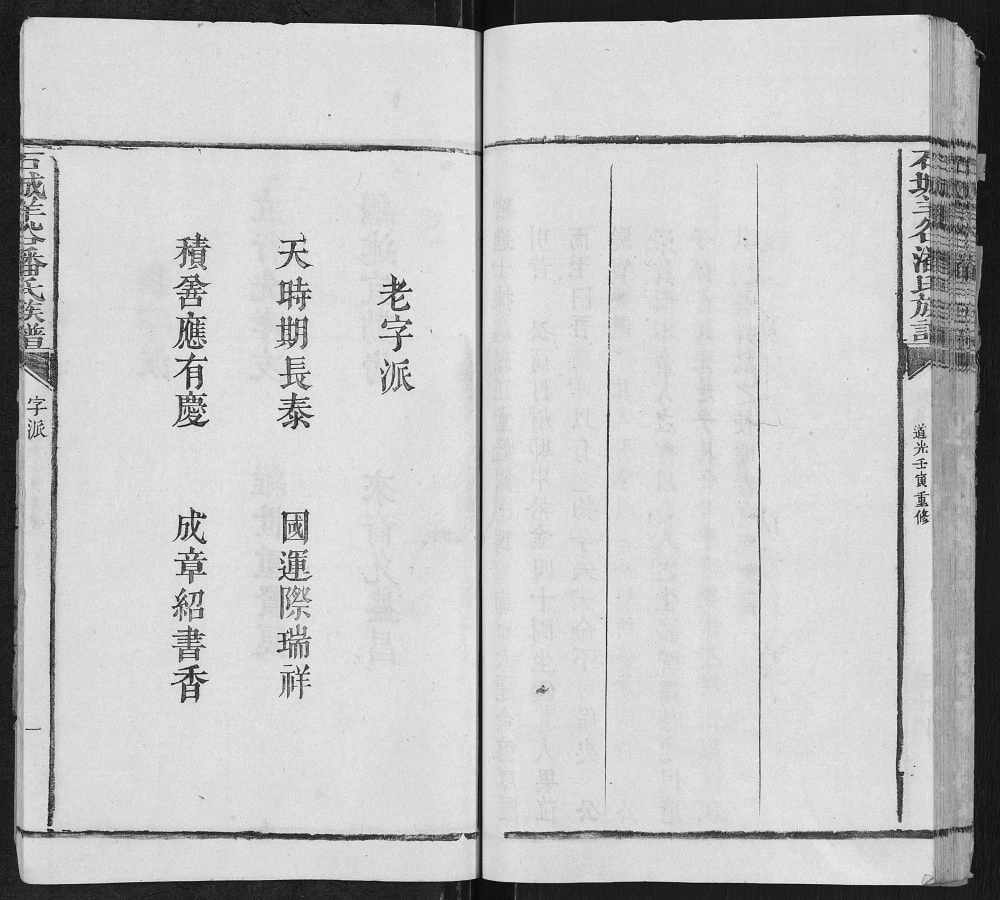 石城羊谷潘氏族譜
道光壬寅重修
老字派
天時期長泰 國運際瑞祥
積善應有慶 成章紹書香
石城羊谷潘氏族譜
字派
一